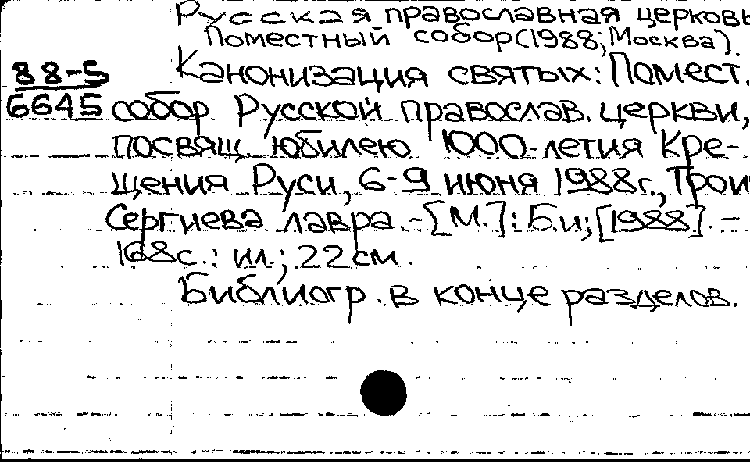 Русская православная церковь
Поместный собор (1988; Москва).
88-5
6645
Канонизация святых: Помест.
собор Русской православ. церкви,
посвящ. юбилею 1000-летия Кре-
щения Руси, 6-9 июня 1988г., Трои
Сергиева лавра. - [М.]: Б.и; [1988]. -
168с.: ил.; 22 см.
Библиогр. в конце разделов.